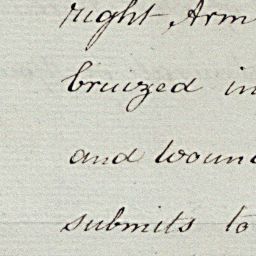 right Arm
bruized in
and woun
submits to